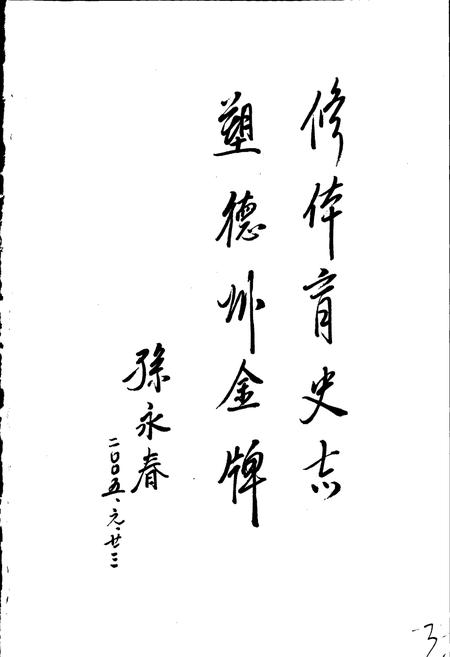 修体育史志
塑德州金牌
孫永春
二〇〇五、元、廿三
3